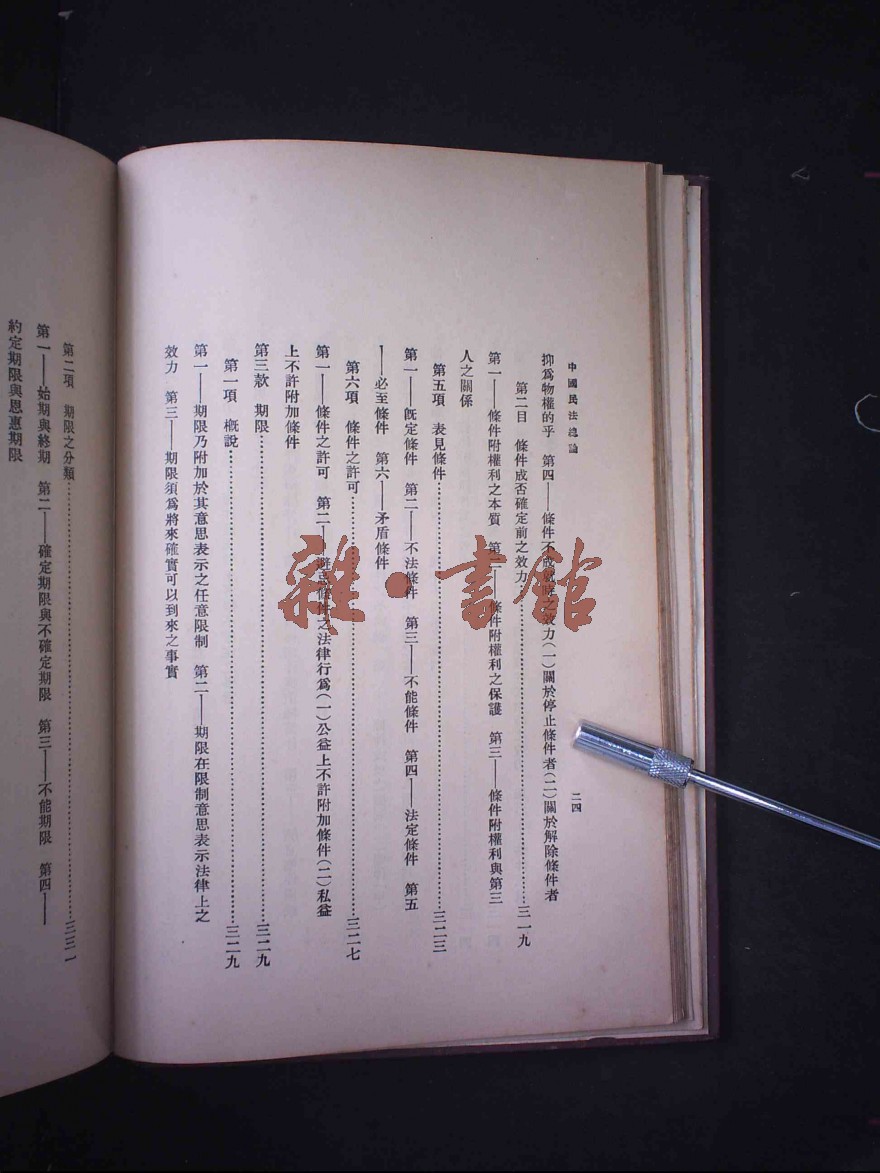 中國民法總論
二四
抑爲物權的乎　第四——條件不成就時之效力(一)關於停止條件者(二)關於解除條件者
第二目　條件成否確定前之效力……三一九
第一——條件附權利之本質　第二——條件附權利之保護　第三——條件附權利與第三
人之關係
第五項　表見條件……三二三
第一——旣定條件　第二——不法條件　第三——不能條件　第四——法定條件　第五
——必至條件　第六——矛盾條件
第六項　條件之許可……三二七
第一——條件之許可　第二——避忌條件之法律行爲(一)公益上不許附加條件(二)私益
上不許附加條件
第三款　期限……三二九
第一項　槪說……三二九
第一——期限乃附加於其意思表示之任意限制　第二——期限在限制意思表示法律上之
效力　第三——期限須爲將來確實可以到來之事實
第二項　期限之分類……三三一
第一——始期與終期　第二——確定期限與不確定期限　第三——不能期限　第四——
約定期限與恩惠期限
雜·書館